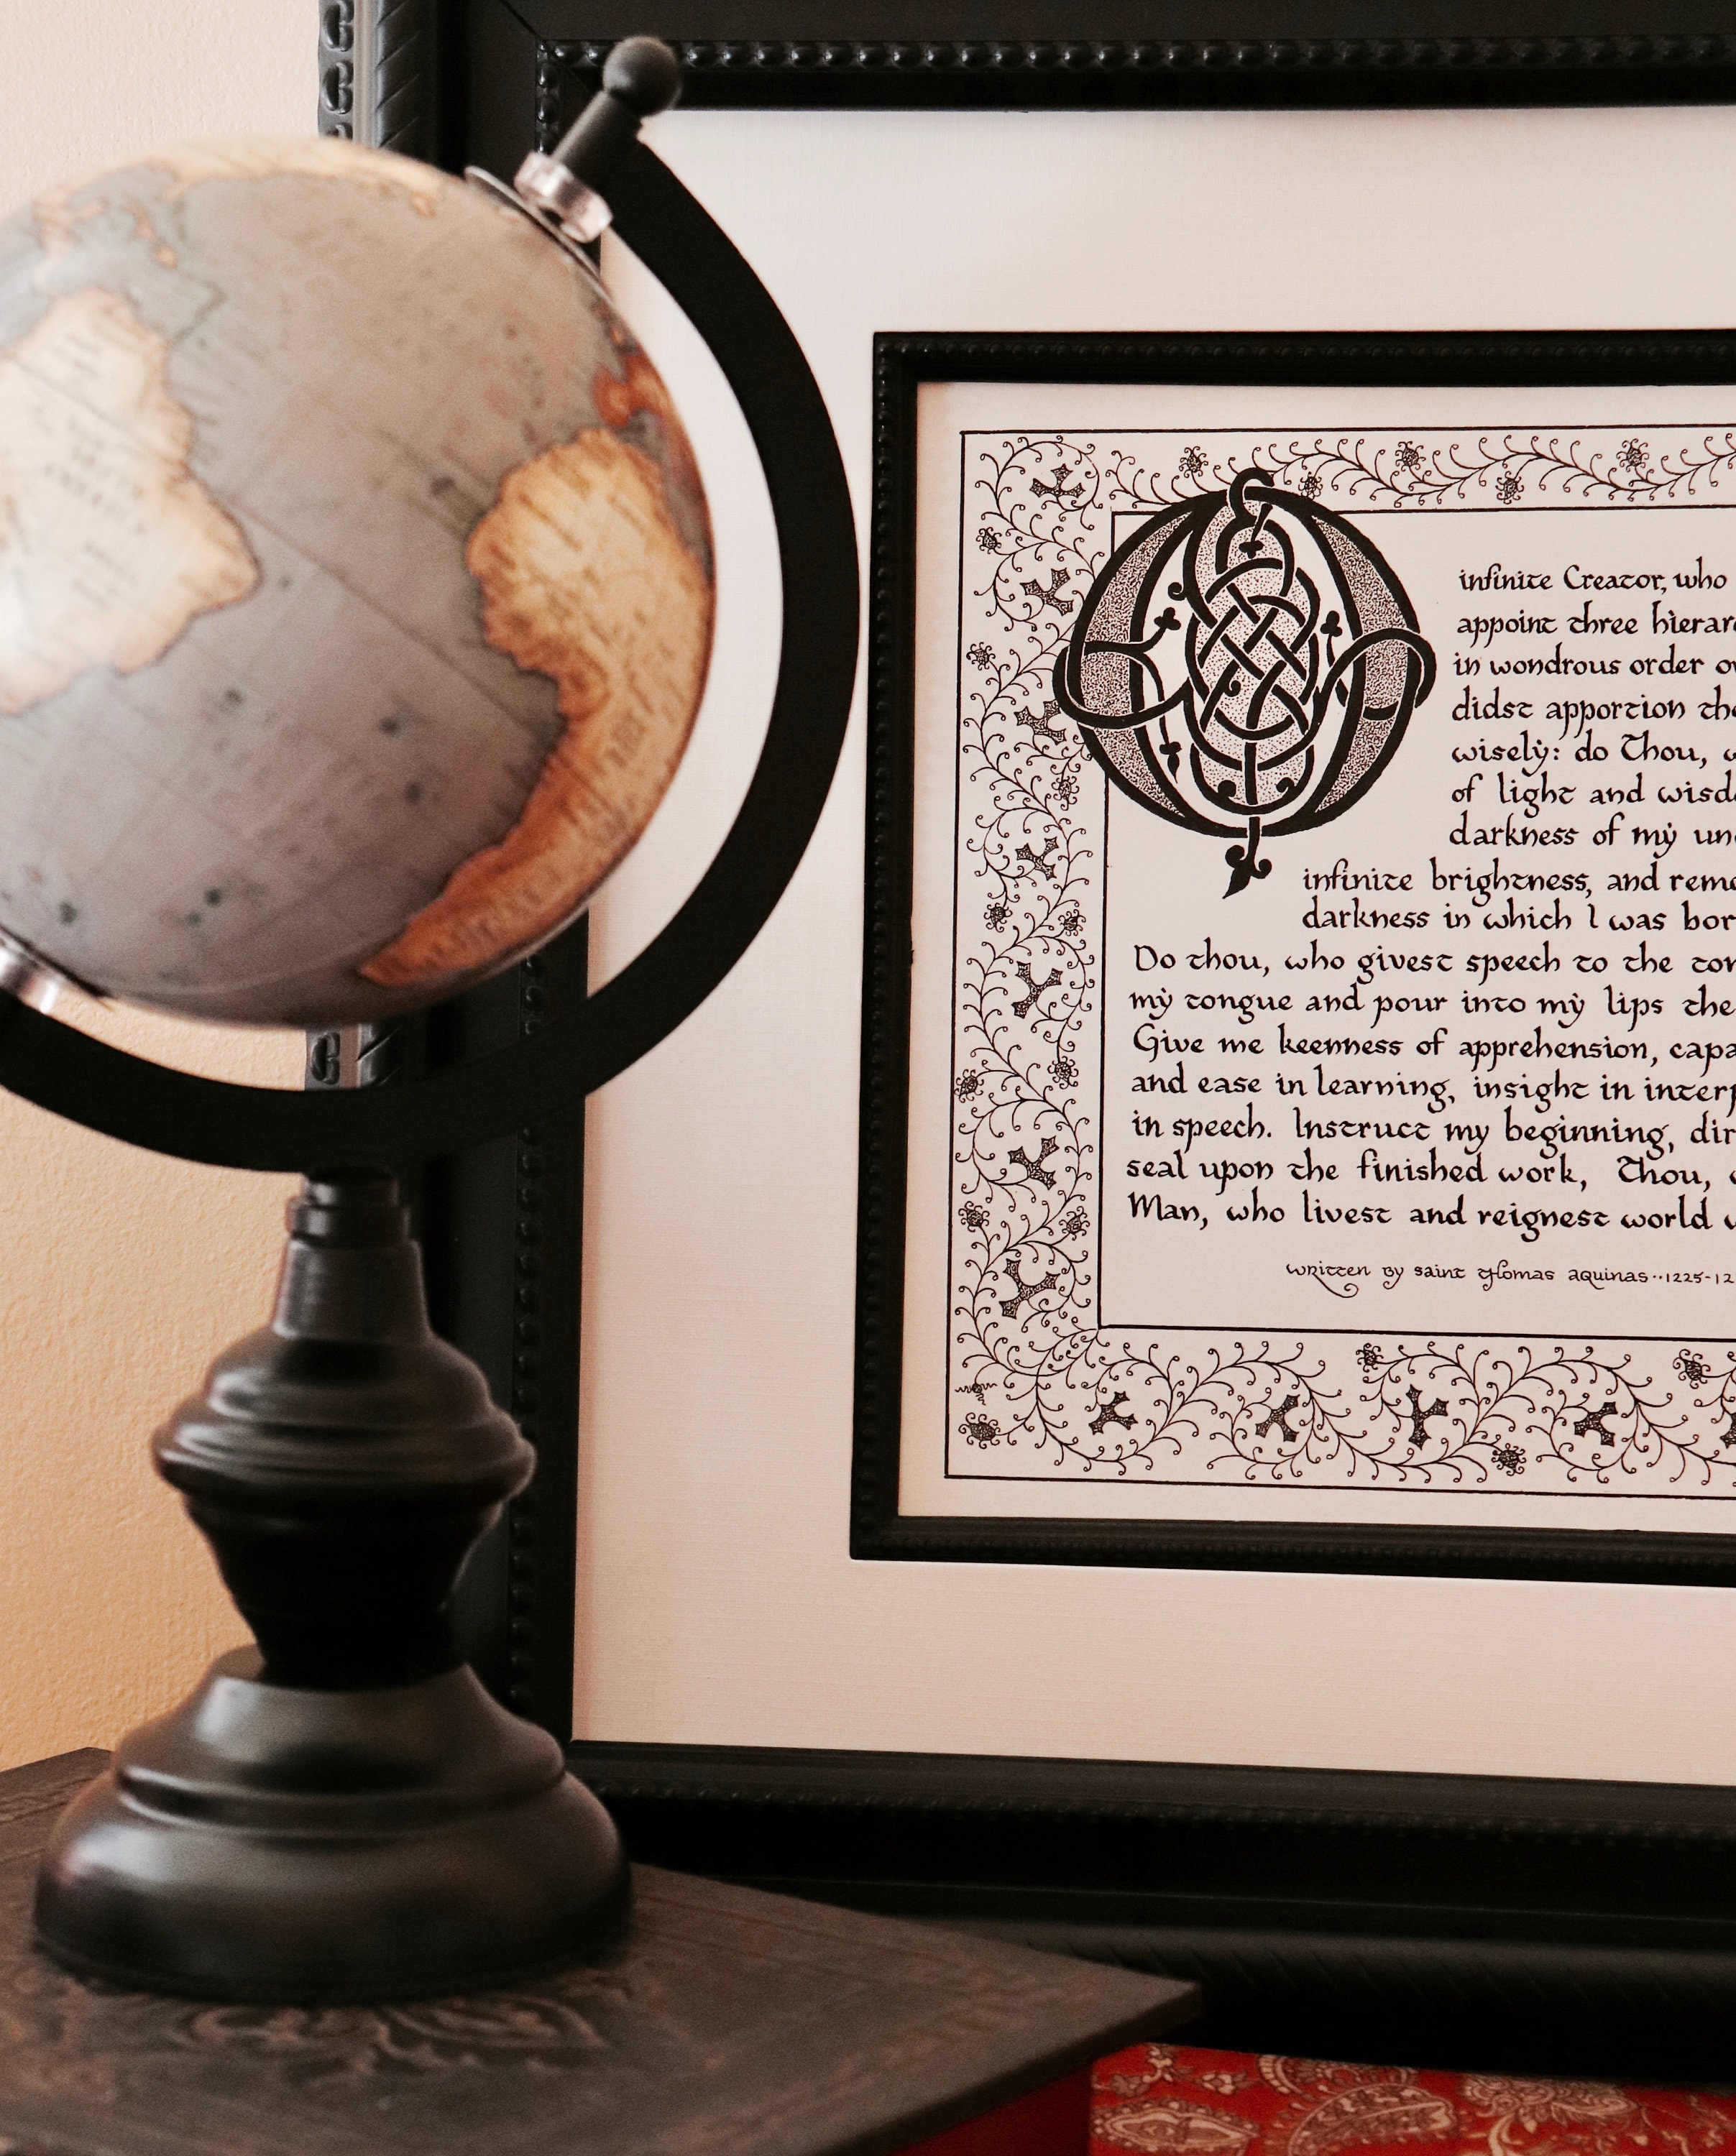 O infinite Creator, who
appoint three
in wondrous order
didst apportion
wisely: do Thou,
of light and
darkness of my
infinite brightness, and
darkness in which I was
Do thou, who givest speech to the
my tongue and pour into my lips the
Give me keenness of apprehension,
and ease in learning, insight in
in speech. Instruct my beginning,
seal upon the finished work, Thou,
Man, who livest and reignest world
written by saint thomas aquinas..1225-